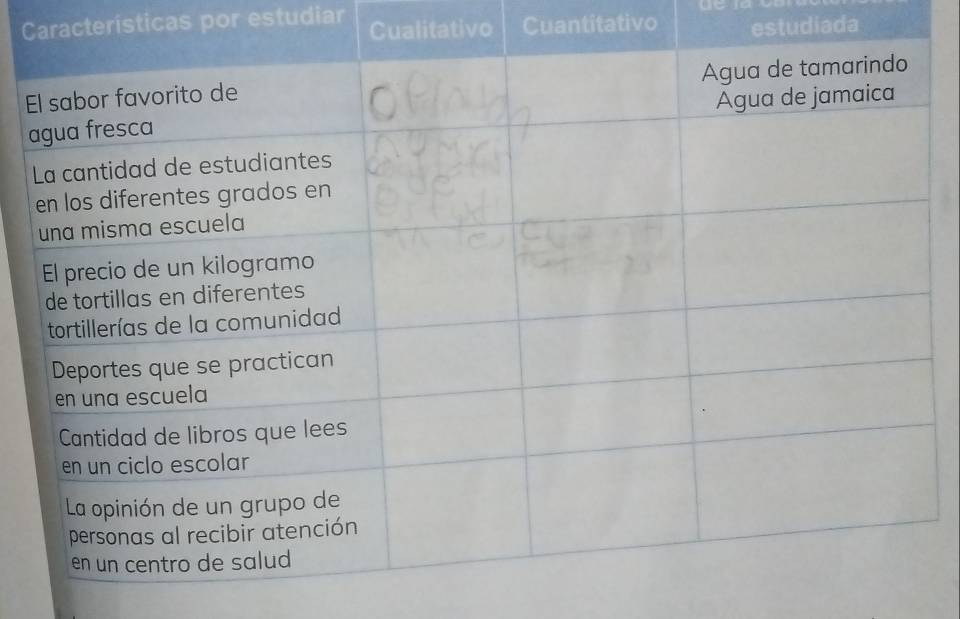 Características por estudiar
Cualitativo
Cuantitativo
estudiada
El sabor favorito de
agua fresca
Agua de tamarindo
Agua de jamaica
La cantidad de estudiantes
en los diferentes grados en
una misma escuela
El precio de un kilogramo
de tortillas en diferentes
tortillerías de la comunidad
Deportes que se practican
en una escuela
Cantidad de libros que lees
en un ciclo escolar
La opinión de un grupo de
personas al recibir atención
en un centro de salud